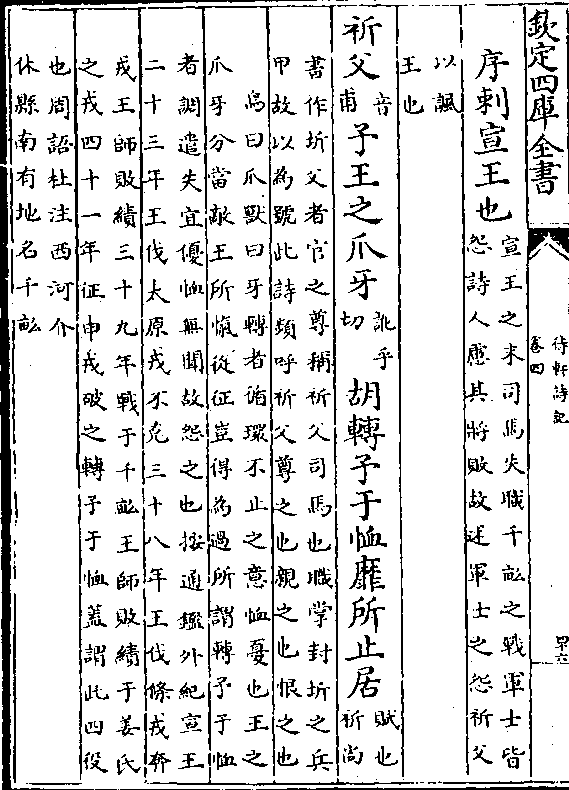 欽定四庫全書
待軒詩記
卷四
四十六
序刺宣王也
宣王之末司馬失職千畝之戰軍士皆
怨詩人慮其將敗故述軍士之怨祈父
以諷
王也
祈父音甫予王之爪牙訛乎切胡轉予于恤靡所止居賦也祈尚
書作圻父者官之尊稱祈父司馬也職掌封圻之兵
甲故以為號此詩類呼祈父尊之也親之也恨之也
鳥曰爪獸曰牙轉者循環不止之意恤憂也王之
爪牙分當敵王所愾從征豈得為過所謂轉予于恤
者調遣失宜優恤無聞故怨之也按通鑑外紀宣王
二十三年王伐太原戎不克三十八年王伐條戎奔
戎王師敗績三十九年戰于千畝王師敗績于姜氏
之戎四十一年征申戎破之轉予于恤蓋謂此四役
也周語杜注西河介
休縣南有地名千畝